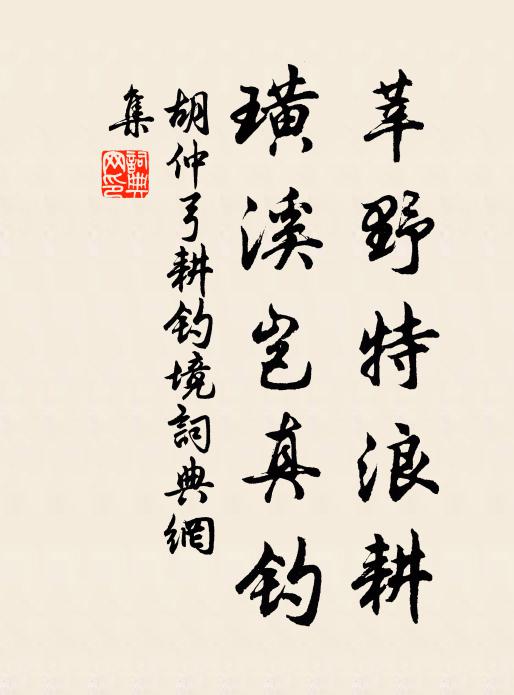 莘野特浪耕
璜溪岂真釣
胡仲弓耕釣境詞典網
集
詞典網印